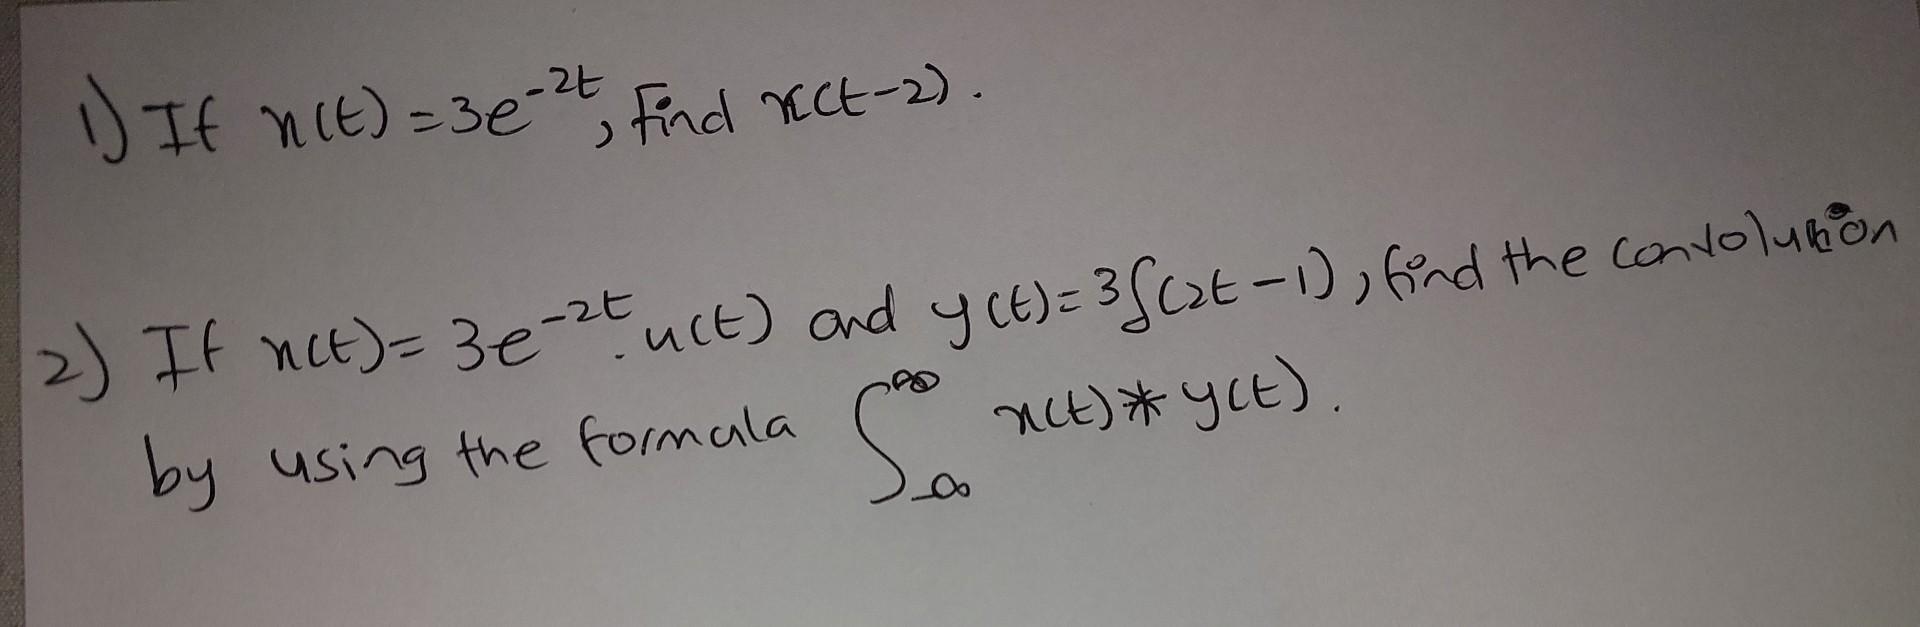 1) If x(t) = 3e^-2t, find x(t-2).
2) If x(t) = 3e^-2t.u(t) and y(t) = 3δ(2t-1), find the convolution
by using the formula ∫_-∞^∞ x(t) * y(t).